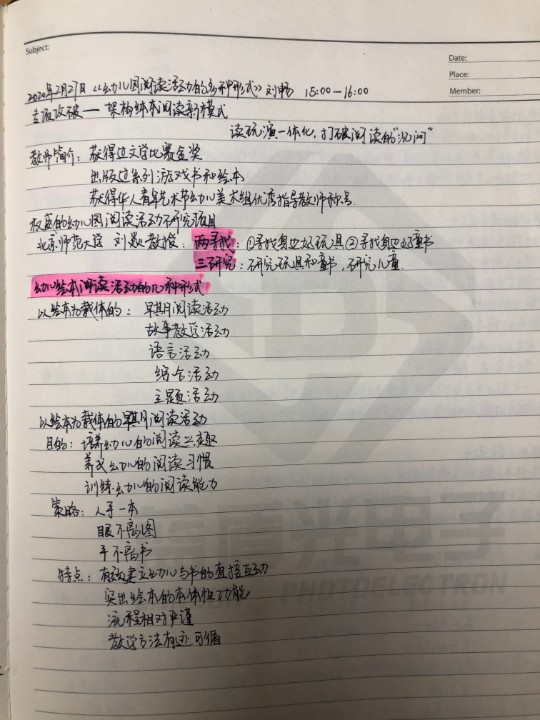 Subject:
Date:
Place:
Member:
2020年2月27日《幼儿园阅读活动的多种形式》刘畅 15:00—16:00
主题改被——架构绘本阅读新模式
读玩演一体化,打破阅读的"沉闷"
教师简介:获得过文学比赛金奖
出版过系列游戏书和绘本
获得华人青年艺术节幼儿美术组优秀指导教师称号
权威的幼儿园阅读活动研究项目
北京师范大学 刘焱教授:两寻找:①寻找身边好玩具②寻找身边好童书
三研究:研究玩具和童书,研究儿童
幼儿绘本阅读活动的几种形式
以绘本为载体的:早期阅读活动
故事教学活动
语言活动
综合活动
主题活动
以绘本为载体的早期阅读活动
目的:培养幼儿的阅读兴趣
养成幼儿的阅读习惯
训练幼儿的阅读能力
策略:人手一本
眼不离图
手不离书
特点:有效建立幼儿与书的直接互动
突出绘本的本体性功能
流程相对严谨
教学方法有迹可循
PHOTOELECTRON